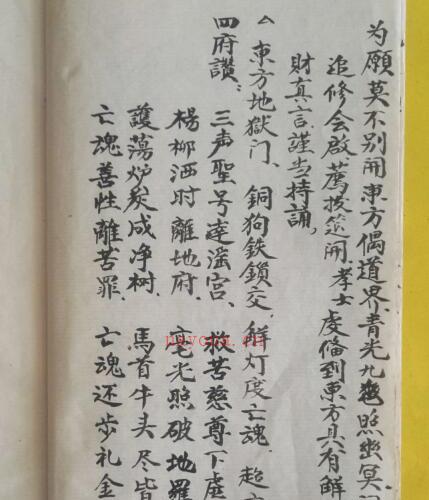 为願莫不別開東方偶道界青光九照幽冥
追修会啟薦拔筵開孝士虔俻到東方具有解
財真言謹当持誦，
△東方地獄门、銅狗鉄鎖交、餅灯度亡魂、超
四府讃：三声聖号達滛宫、救苦慈尊下虚
楊柳洒时離地府、毫光照破地羅
護蕩炉炭成净树、馬首牛头尽皆
亡魂善性離苦罪、亡魂还步礼金